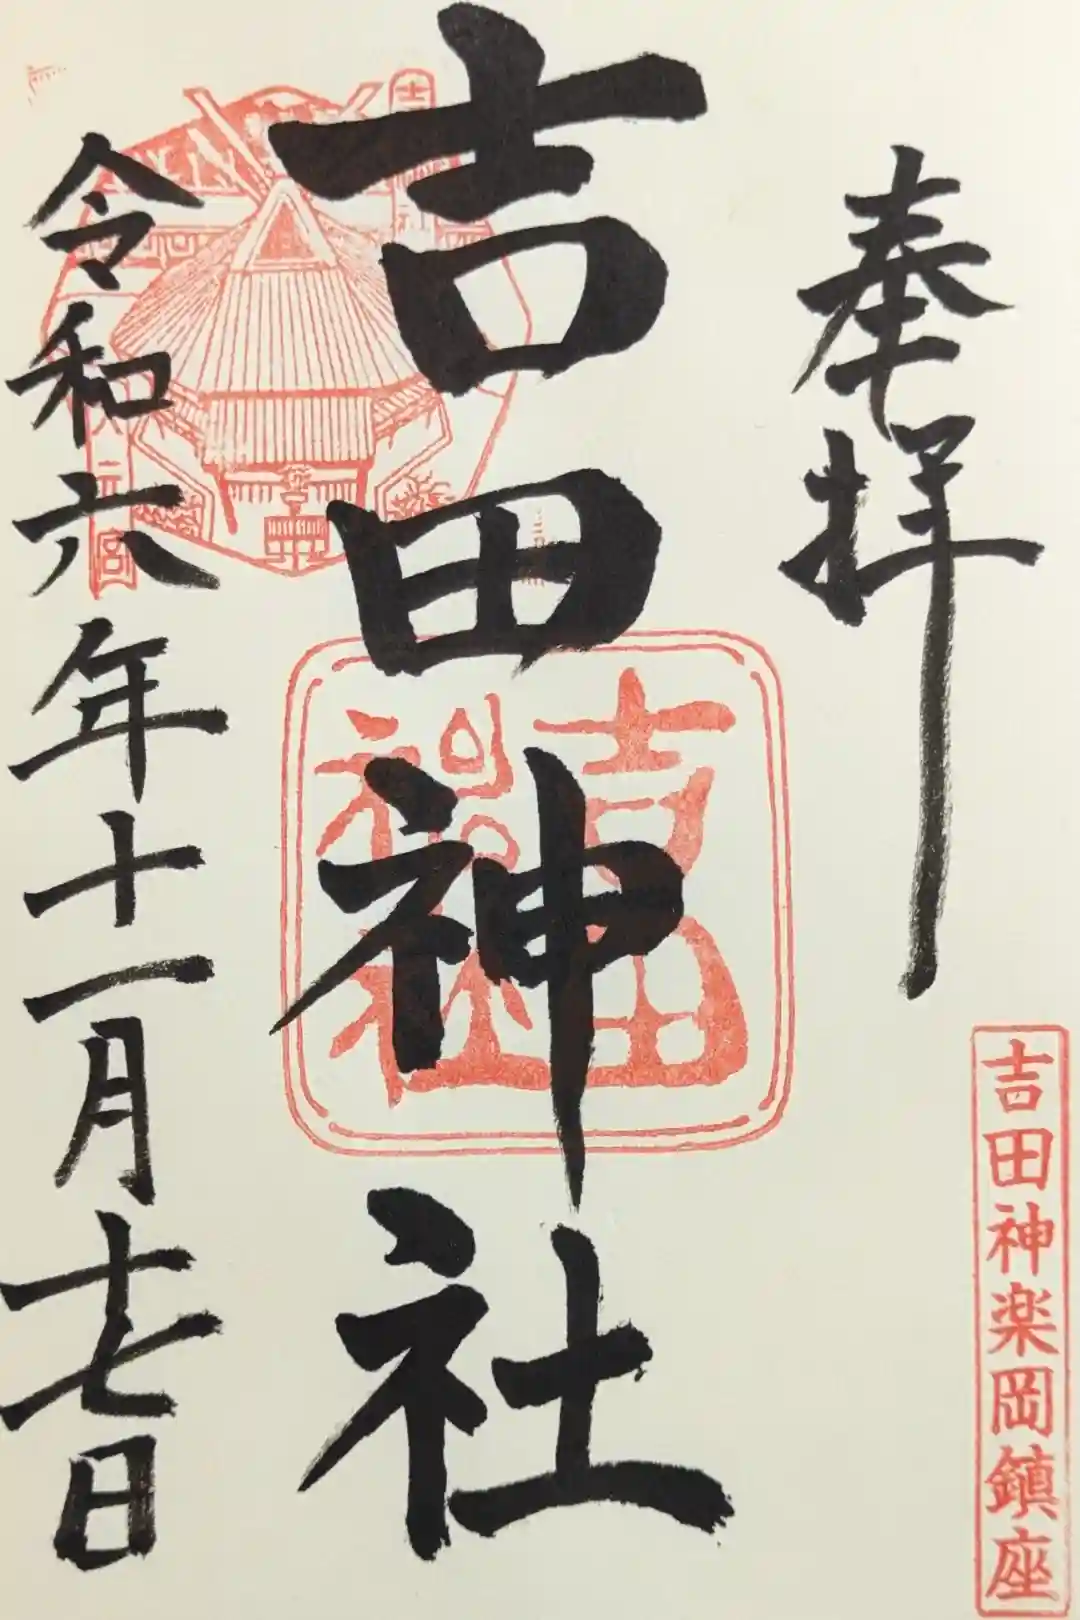 奉拝
吉田神楽岡鎮座
吉田神社
吉田神社
大元宮
令和六年十一月十七日